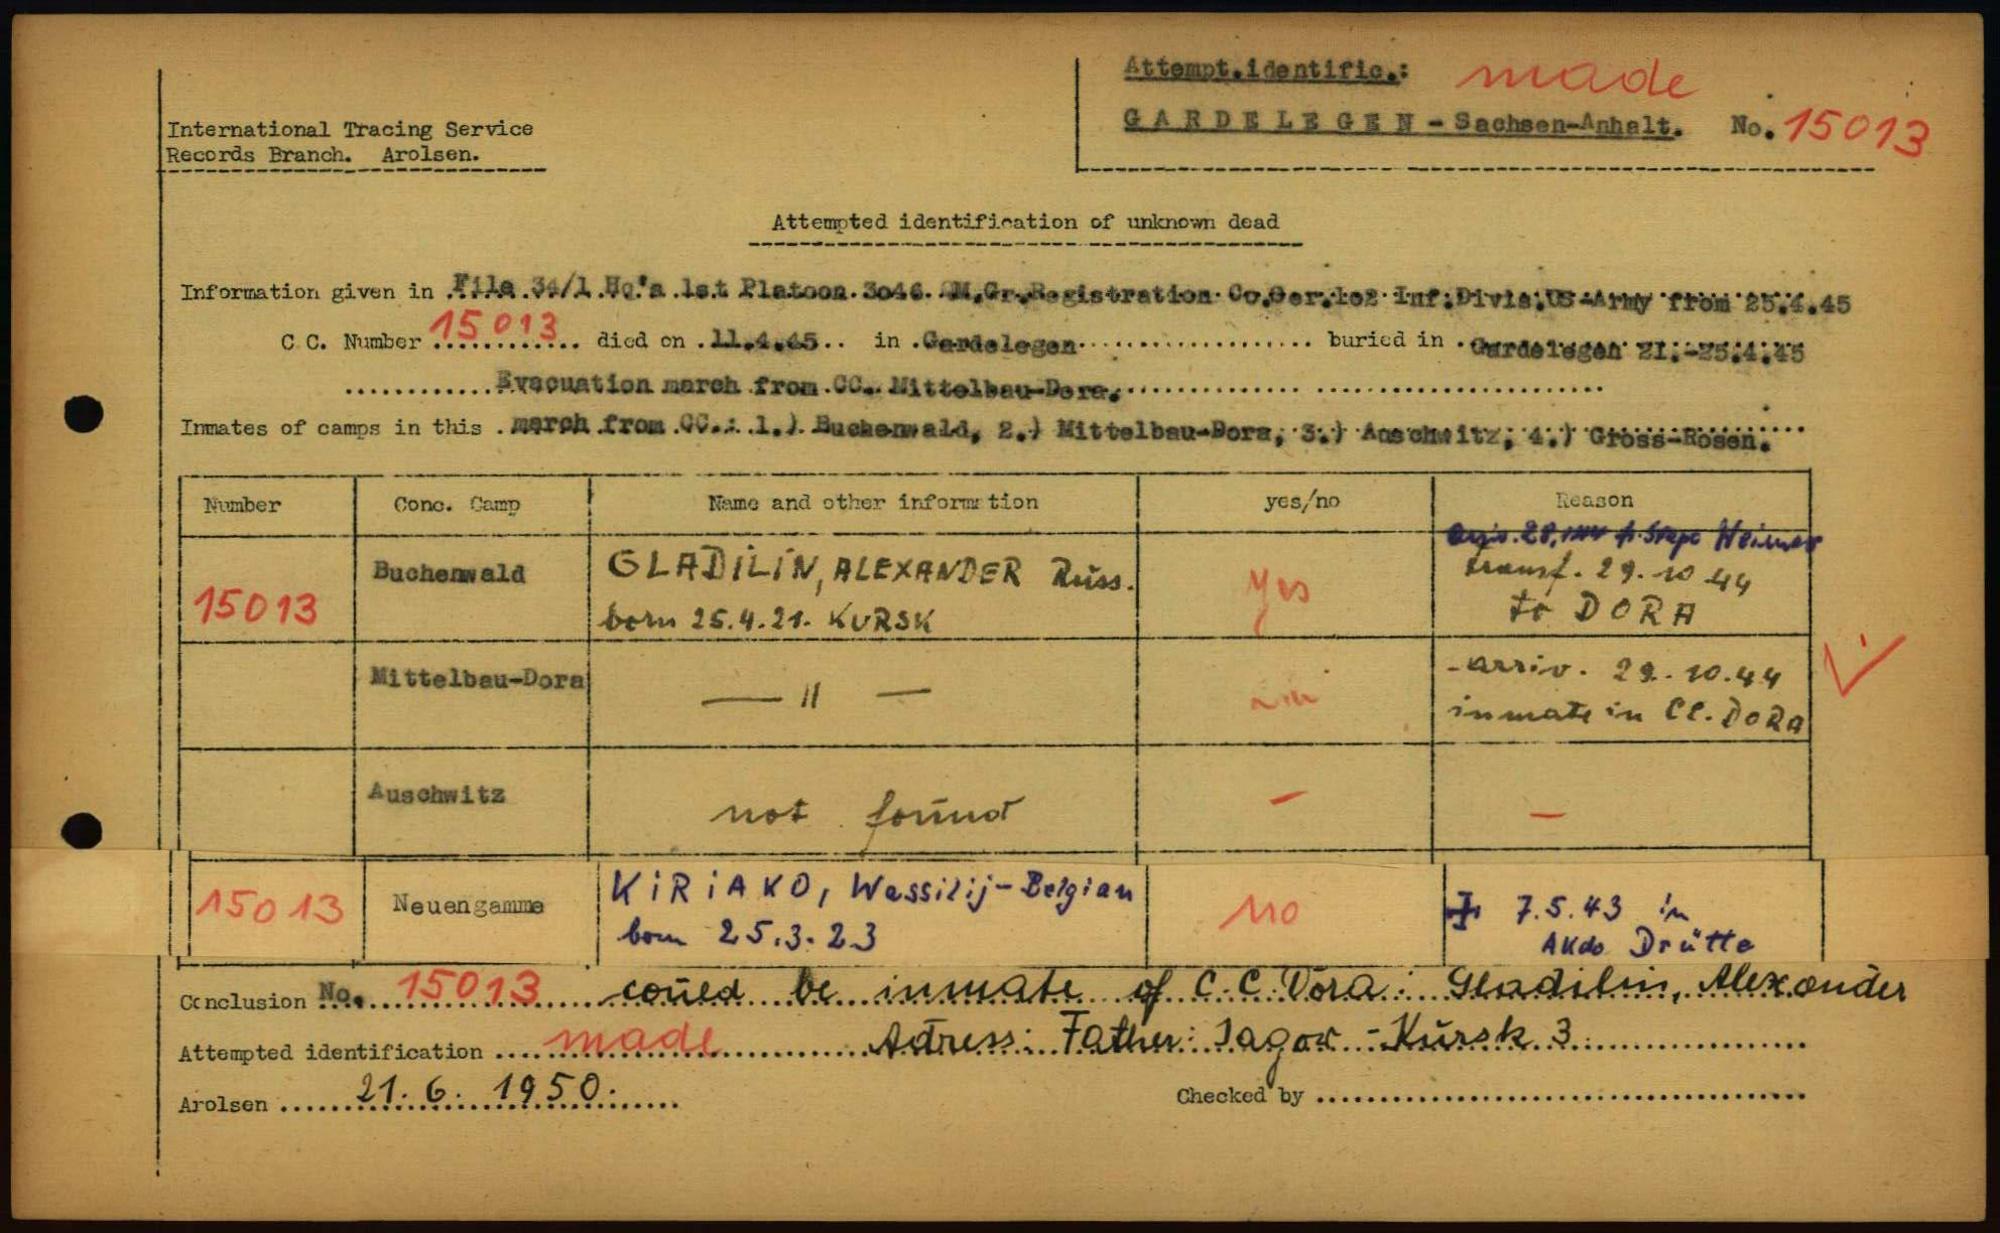 Attempt.identific.: made
GARDELEGEN - Sachsen-Anhalt. No. 15013
International Tracing Service
Records Branch. Arolsen.
Attempted identification of unknown dead
Information given in File 34/1 Hq's 1st Platoon 3046 QM.Gr.Registration Co.Ser.102 Inf.Divis.US-Army from 25.4.45
C C. Number 15013 died on 11.4.45 in Gardelegen buried in Gardelegen 21.-25.4.45
Evacuation march from CC. Mittelbau-Dora.
Inmates of camps in this march from CC.: 1.) Buchenwald, 2.) Mittelbau-Dora, 3.) Auschwitz, 4.) Gross-Rosen.
Number Conc. Camp Name and other information yes/no Reason
15013 Buchenwald GLADILIN, ALEXANDER Russ. yes
born 25.4.21. KURSK
transf. 29.10 44
to DORA
Mittelbau-Dora — 11 —
-arriv. 29.10.44
inmate in CC. DORA
Auschwitz not found — —
15013 Neuengamme KIRIAKO, Wassilij-Belgian no 7.5.43 in
born 25.3.23 AKdo Drütte
Conclusion No. 15013 could be inmate of C.C. Dora: Gladilin, Alexander
Attempted identification made Adress: Father: Jagor - Kursk 3
Arolsen 21. 6. 1950. Checked by